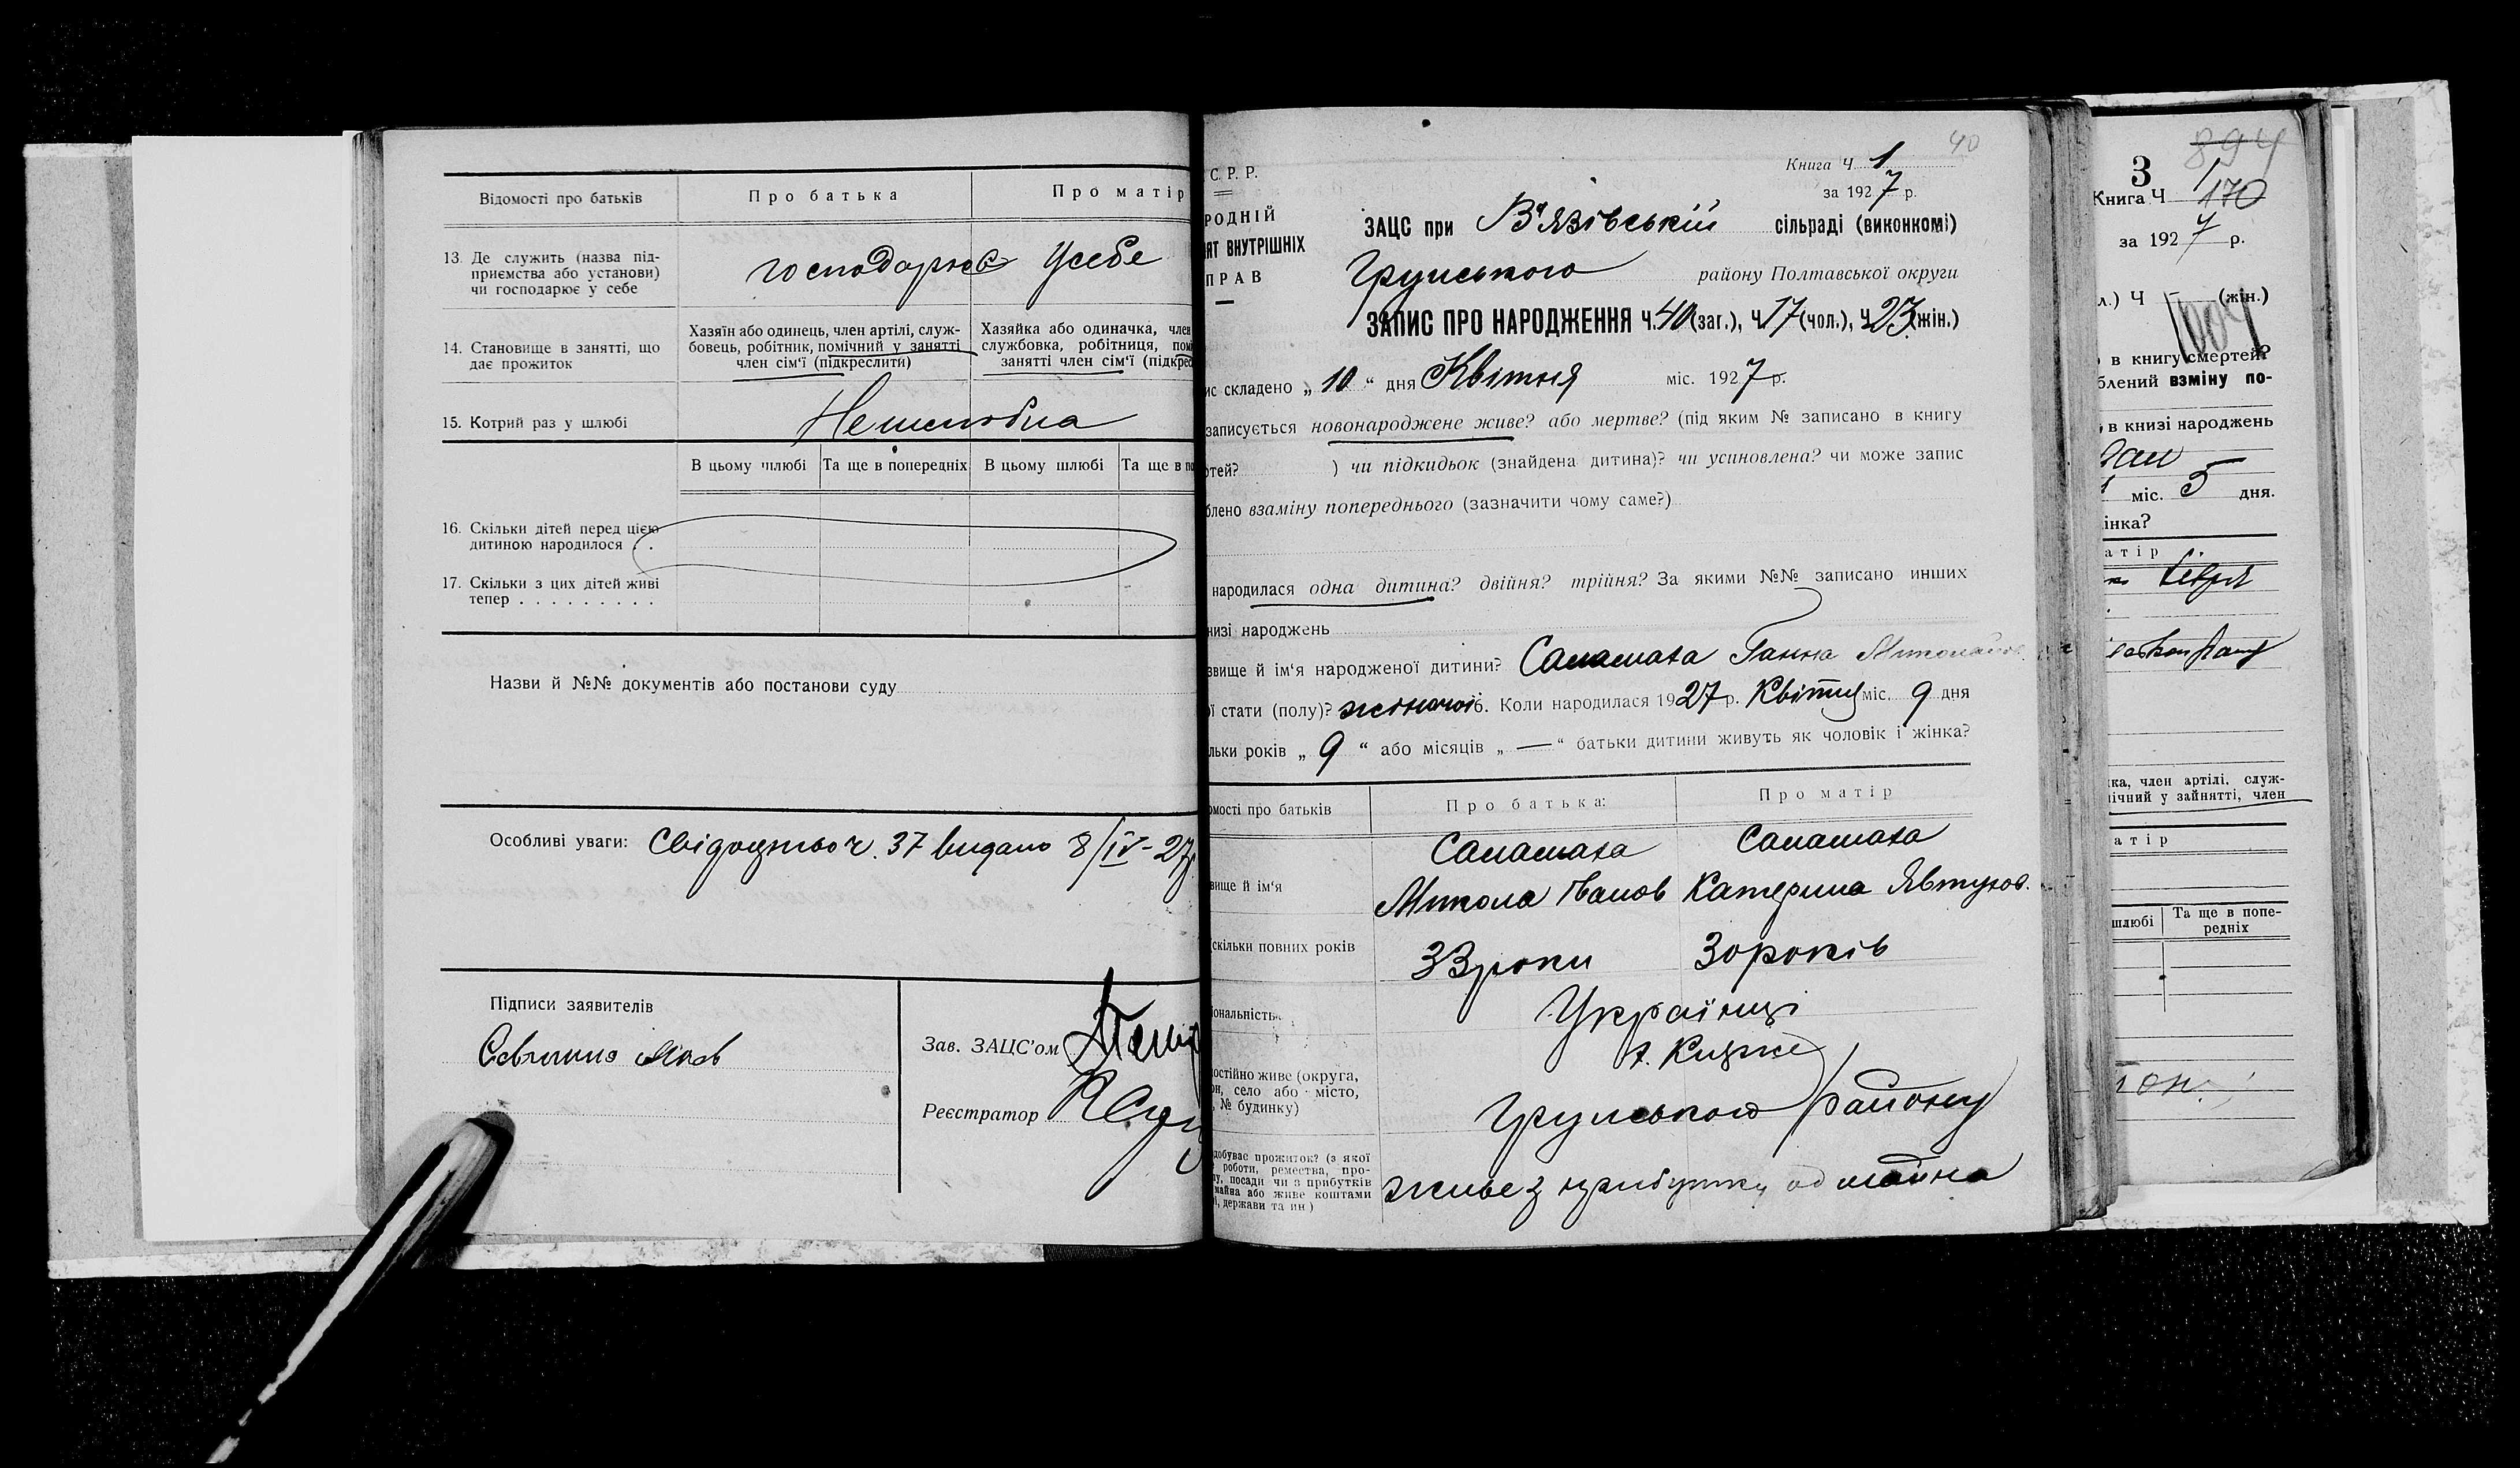 Відомості про батьків
Про батька
Про матір
13. Де служить (назва під-
приємства або установи)
чи господарює у себе
господарює усебе
14. Становище в занятті, що
дає прожиток
Хазяїн або одинець, член артілі, служ-
бовець, робітник, помічний у занятті
член сім'ї (підкреслити)
Хазяйка або одиначка, член
службовка, робітниця, пом
занятті член сім'ї (підкрес
15. Котрий раз у шлюбі
В цьому шлюбі
Та ще в попередніх
В цьому шлюбі
Та ще в по
16. Скільки дітей перед цією
дитиною народилося . .
17. Скільки з цих дітей живі
тепер . . . . . . . . .
Назви й №№ документів або постанови суду
Особливі уваги: Свідоцтво ч. 37 видано 8/IV-27р.
Підписи заявителів
Зав. ЗАЦС'ом
Реєстратор
40
С. Р. Р.
Книга Ч 1
за 1927 р.
РОДНІЙ
ЯТ ВНУТРІШНІХ
ПРАВ
ЗАЦС при В'язівській сільраді (виконкомі)
Грунського району Полтавської округи
ЗАПИС ПРО НАРОДЖЕННЯ Ч. 40 (заг.), Ч 17 (чол.), Ч 23 (жін.)
ис складено „ 10 “ дня Квітня міс. 1927 р.
записується новонароджене живе? або мертве? (під яким № записано в книгу
ртей? ) чи підкидьок (знайдена дитина)? чи усиновлена? чи може запис
блено взаміну попереднього (зазначити чому саме?)
народилася одна дитина? двійня? трійня? За якими №№ записано инших
низі народжень
звище й ім'я народженої дитини? Саламаха Ганна Миколаївн.
ої стати (полу)? жіночої 6. Коли народилася 1927 р. Квітня міс. 9 дня
льки років „ 9 “ або місяців „ — “ батьки дитини живуть як чоловік і жінка?
омості про батьків
Про батька:
Про матір
вище й ім'я
Саламаха
Микола Іванов
Саламаха
Катерина Явтухов.
скільки повних років
33 роки
30 років
іональність
Українці
остійно живе (округа,
он, село або місто,
, № будинку)
Грунського району
добуває прожиток? (з якої
роботи, ремества, про-
у, посади чи з прибутків
майна або живе коштами
і, держави та ин)
живе з прибутку од майна
894
3
Книга Ч 170
за 1927 р.
л.) Ч (жін.)
о в книгу смертей?
блений взміну по-
, в книзі народжень
міс. 5 дня.
інка?
атір
ка, член артілі, служ-
мічний у зайнятті, член
атір
шлюбі
Та ще в попе-
редніх